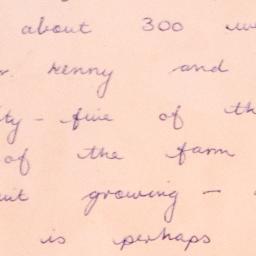 about 300
Kenny and
ty - five of th
of the farm
growing -
is perhaps